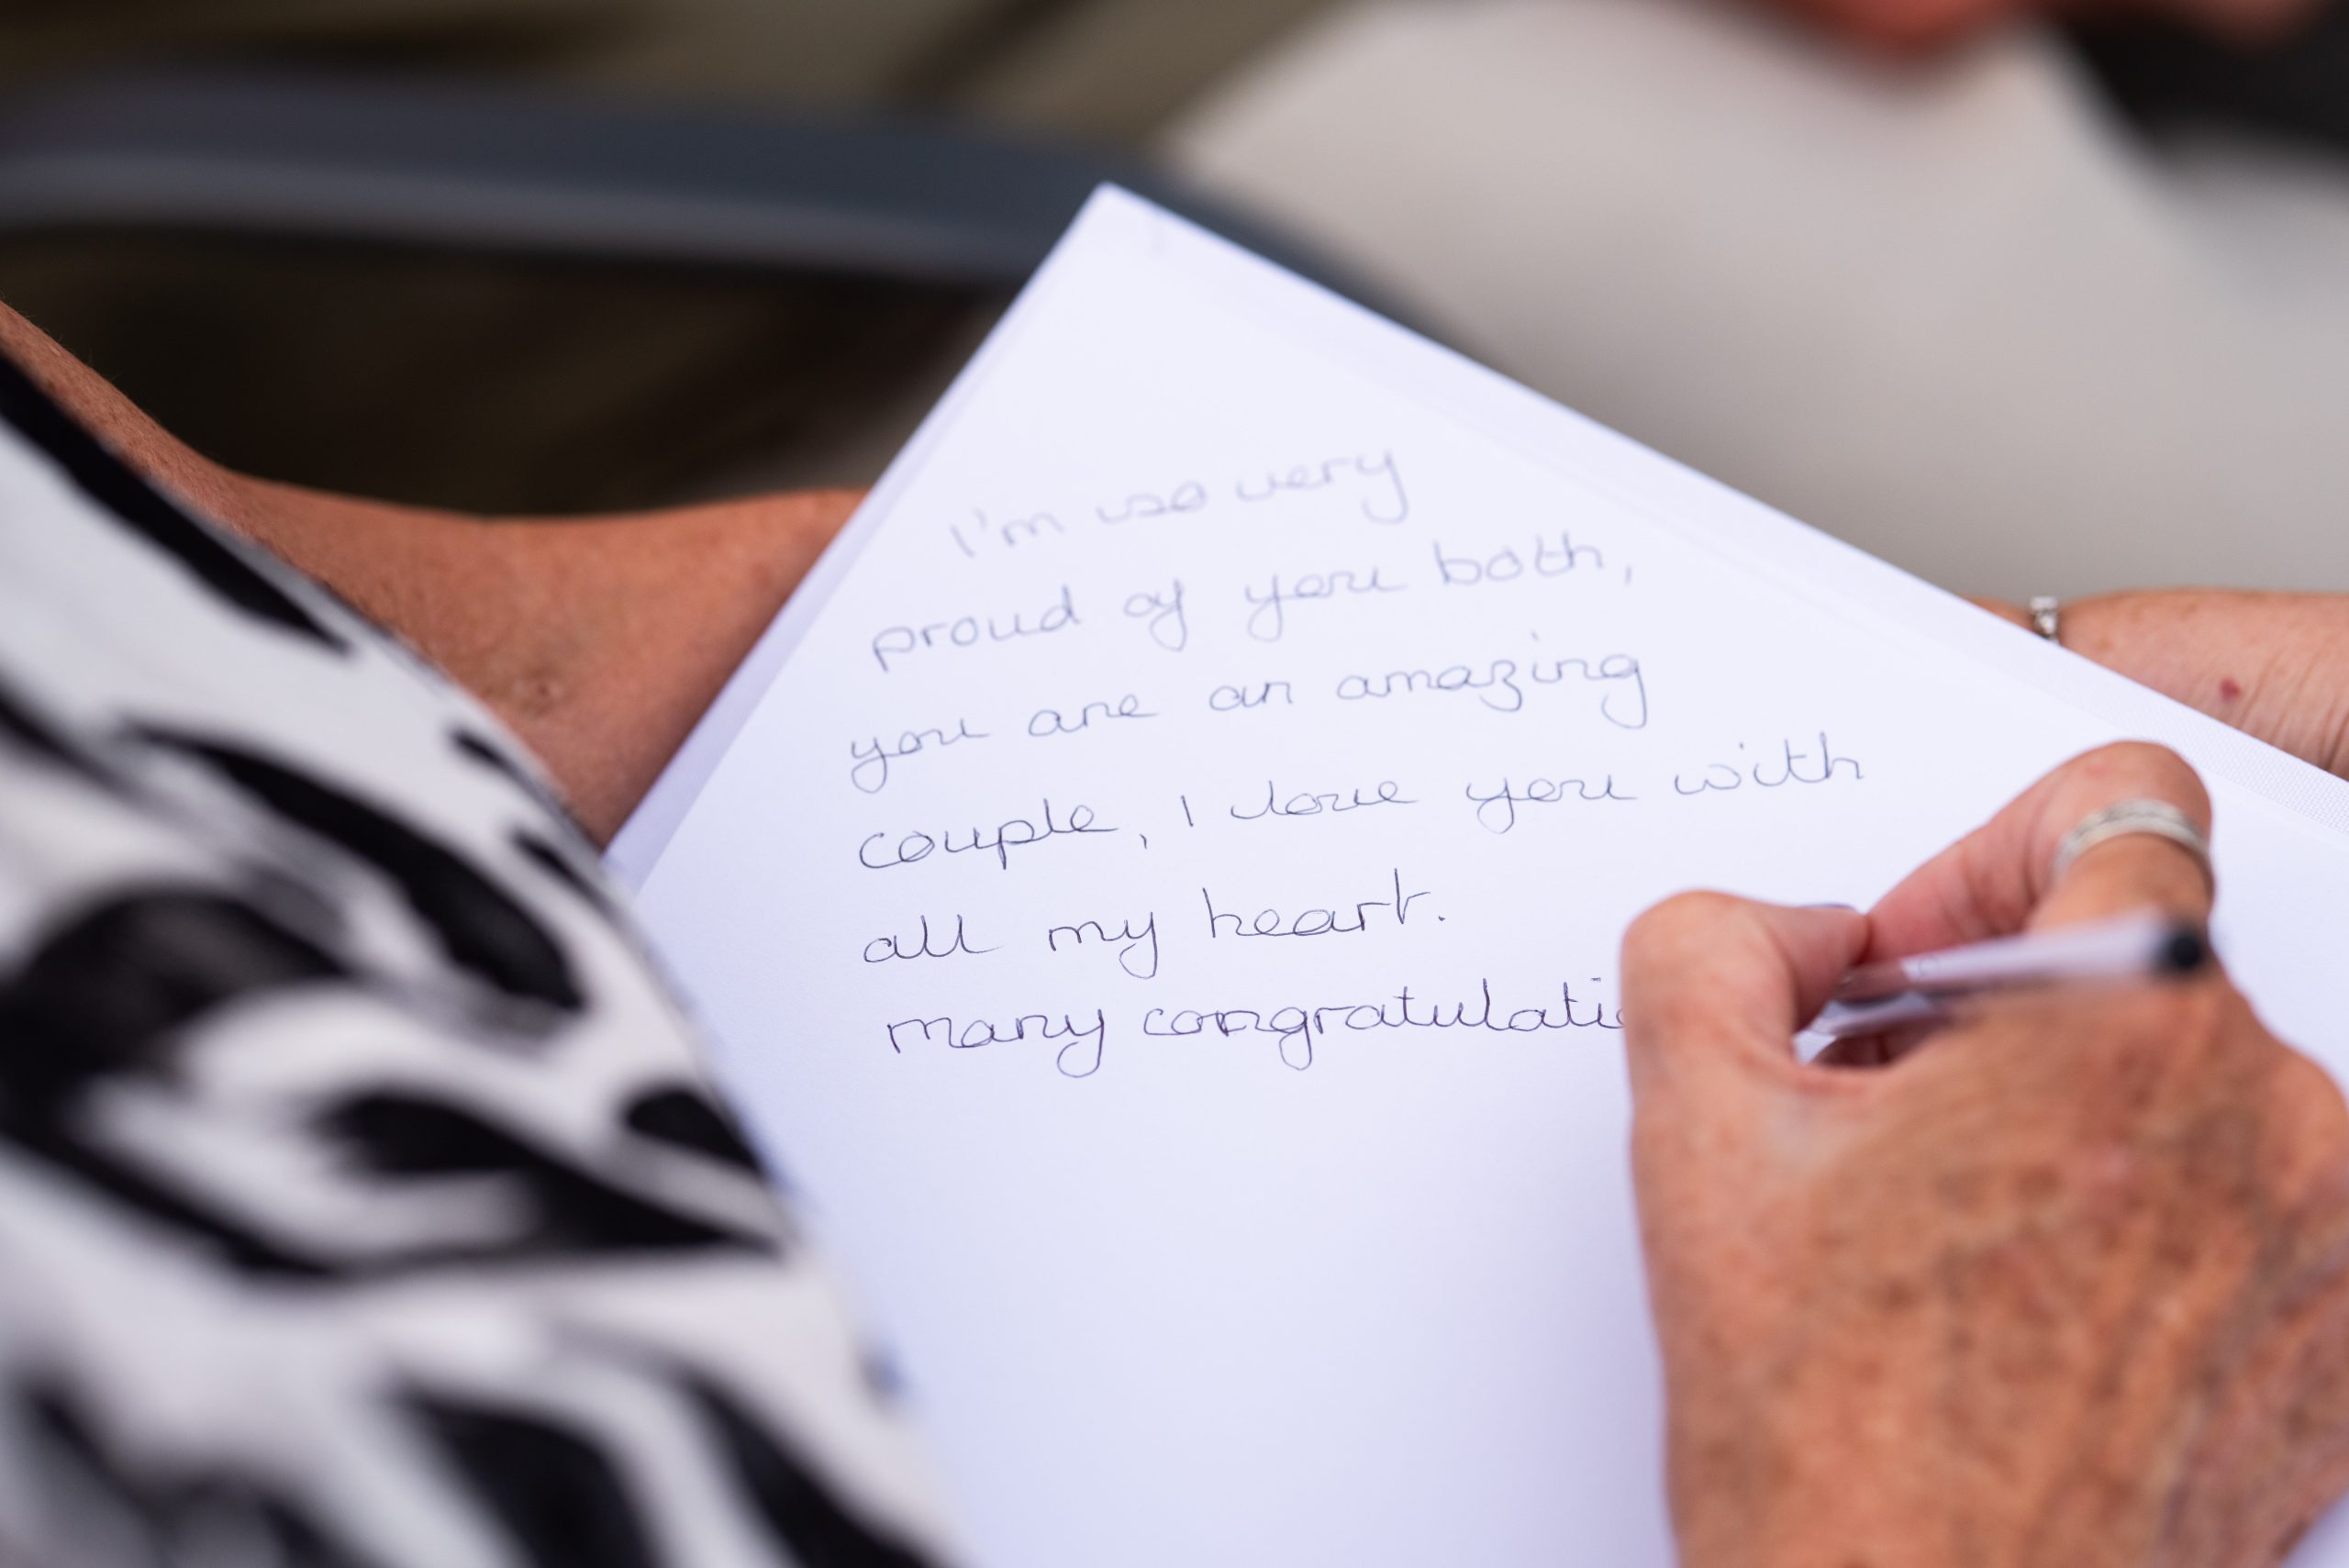 I'm so very
proud of you both,
you are an amazing
couple, I love you with
all my heart.
many congratulati